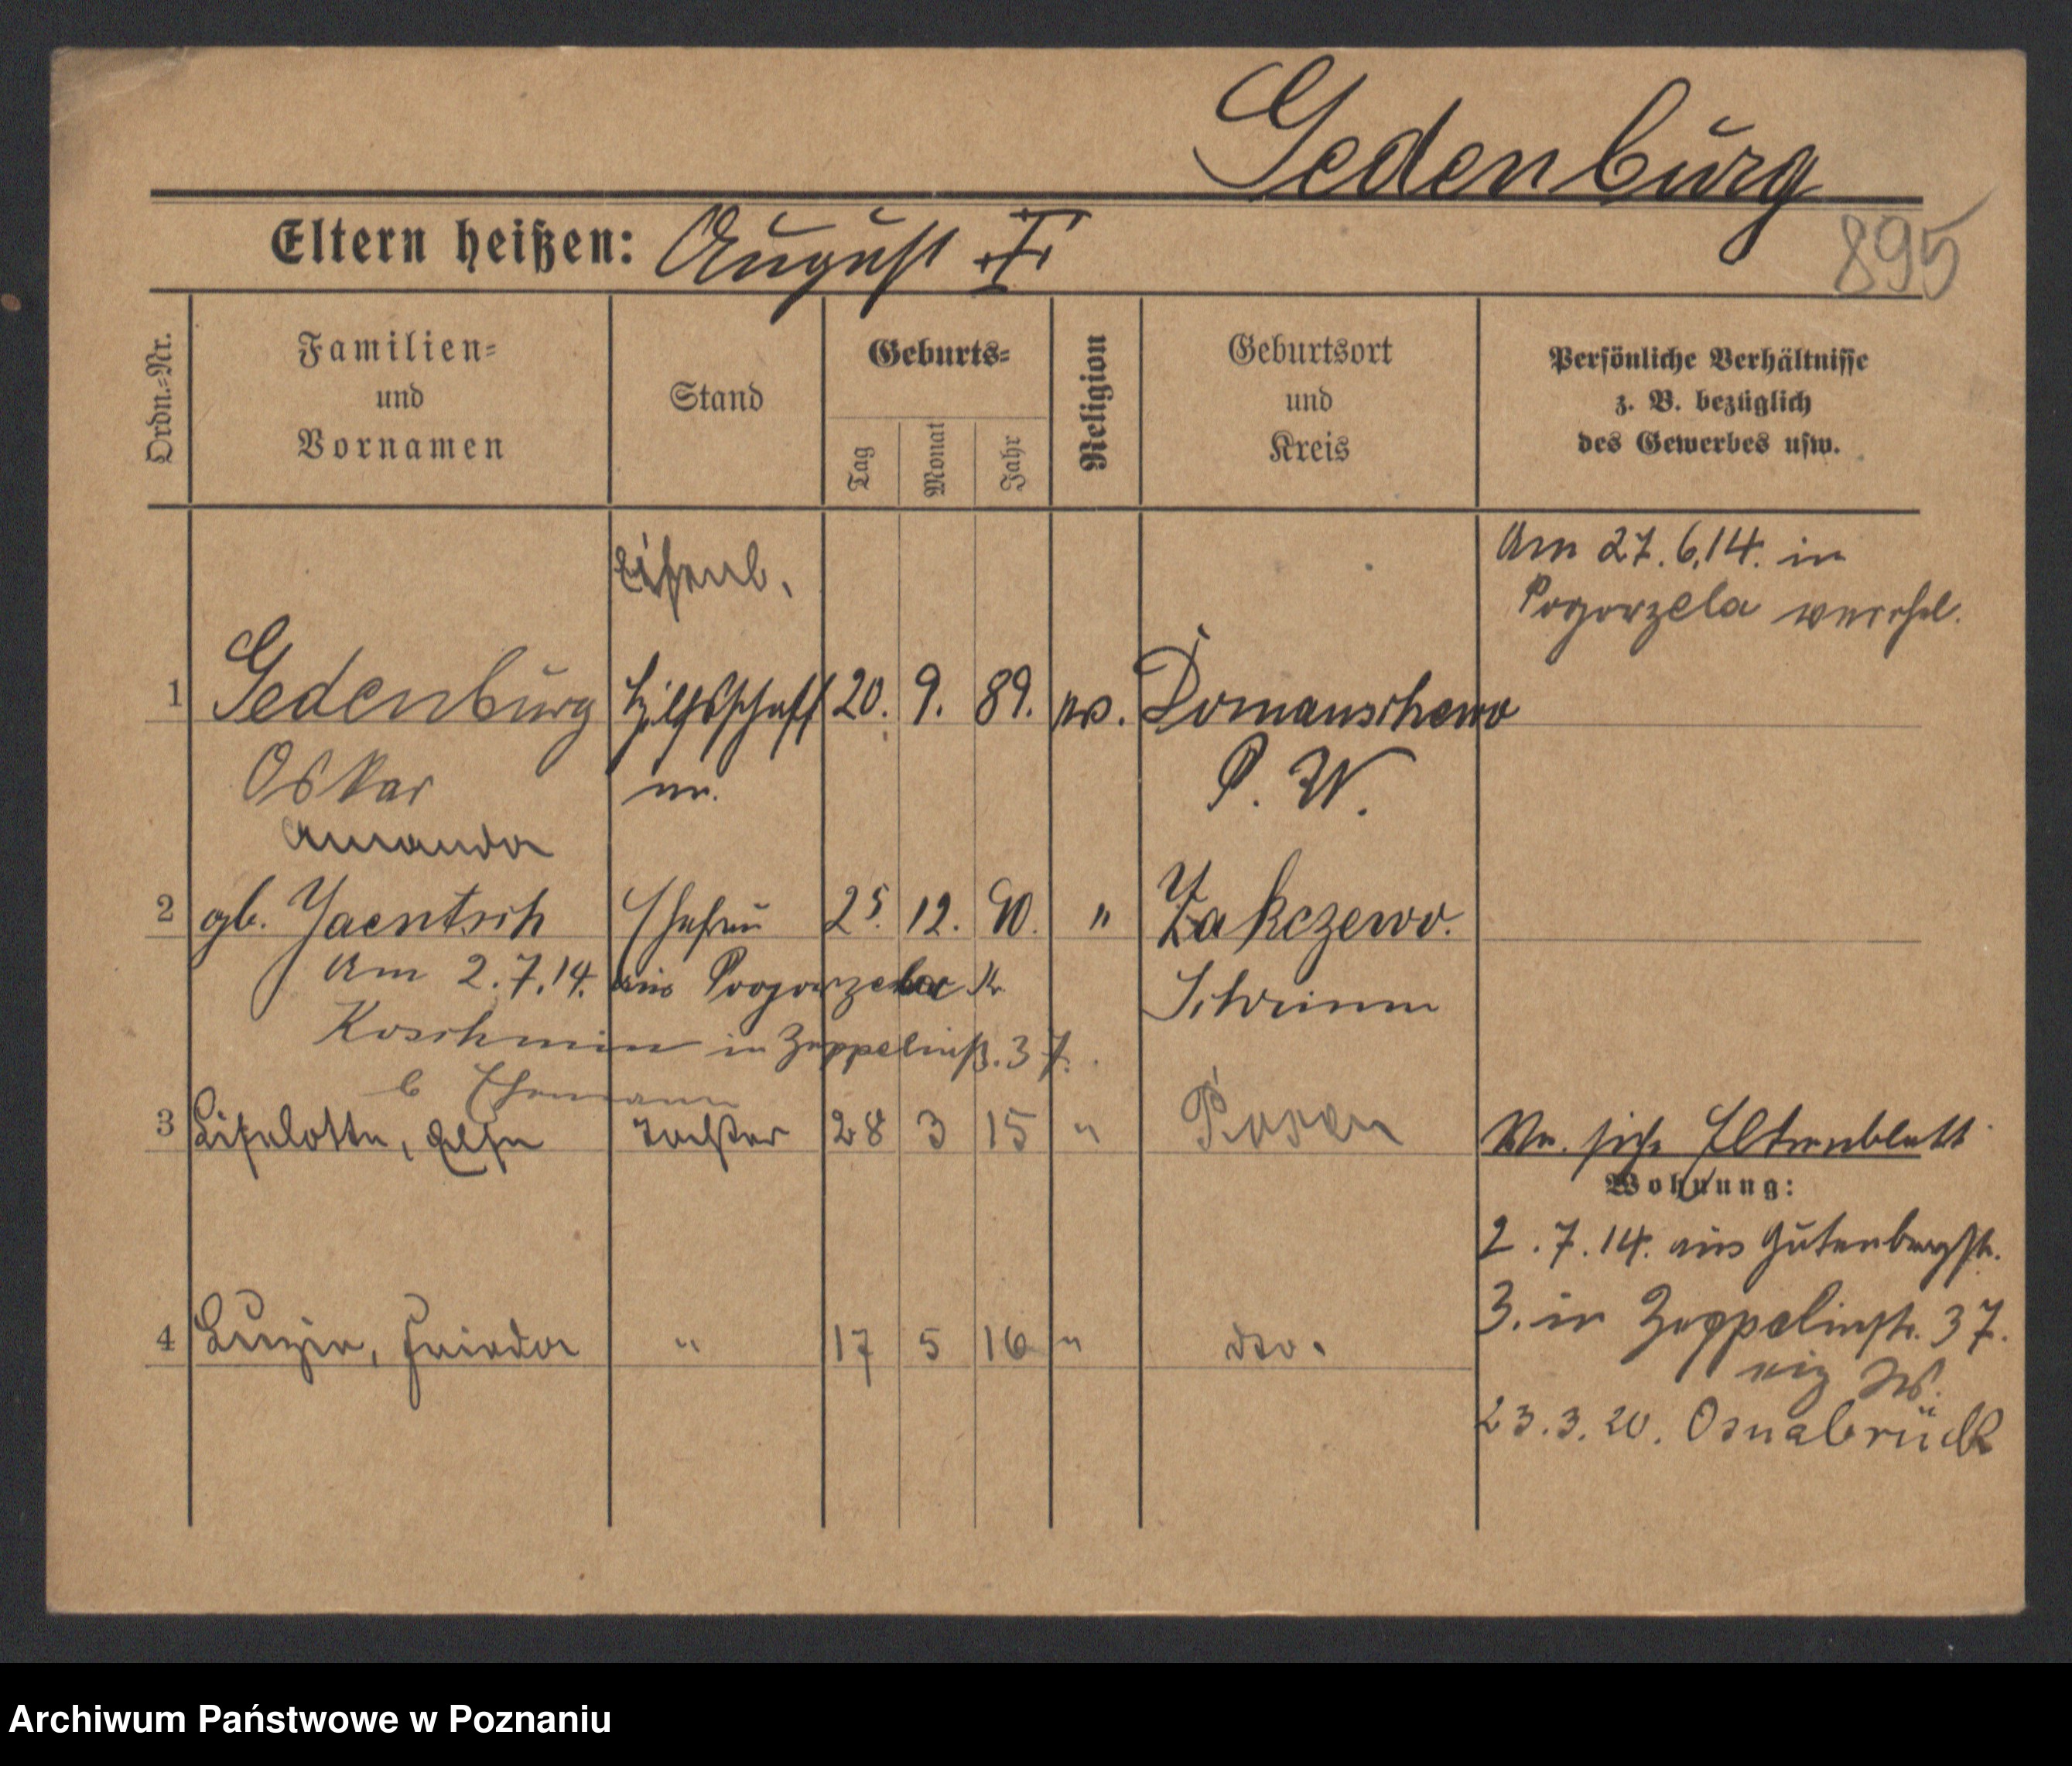 Gedenburg
Eltern heißen: August I
895
Ordn.-Nr.
Familien-
und
Vornamen
Stand
Geburts-
Tag
Monat
Jahr
Religion
Geburtsort
und
Kreis
Persönliche Verhältnisse
z. B. bezüglich
des Gewerbes usw.
Am 27.6.14. in
Pogorzela verehel.
Eisenb.
1 Gedenburg Hilfsschaff 20. 9. 89. Domanschewo
Oskar nr. P. W.
Amanda
2 gb. Jaentsch Ehefrau 25. 12. 90. " Zakczewo.
Am 2.7.14. aus Pogorzela Kr.
Schrimm
Koschmin in Zeppelinstr. 37.
b Ehemann
3 Liselotte, Else Tochter 28 3 15 " Posen
siehe Elternblatt
Wohnung:
2.7.14. aus Gutenbergstr.
3. in Zeppelinstr. 37.
4 Luzie, Frieda " 17 5 16 " dto.
23.3.20. Osnabrück
Archiwum Państwowe w Poznaniu